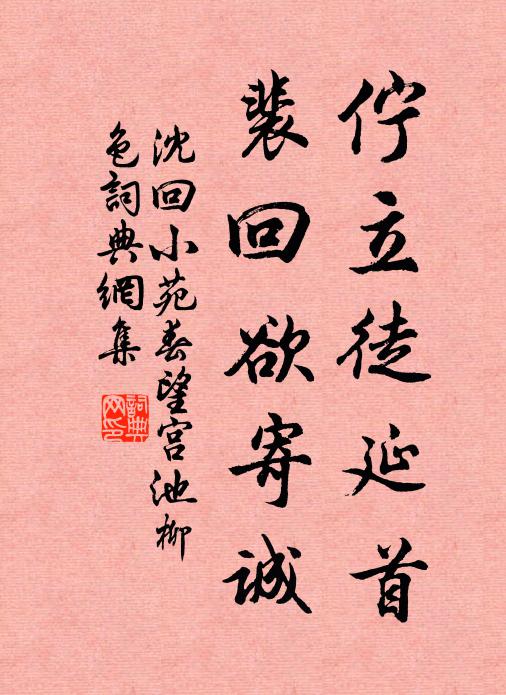 佇立徒延首
裴回欲寄誠
沈回小苑春望宮池柳
色詞典網集
詞典
网印